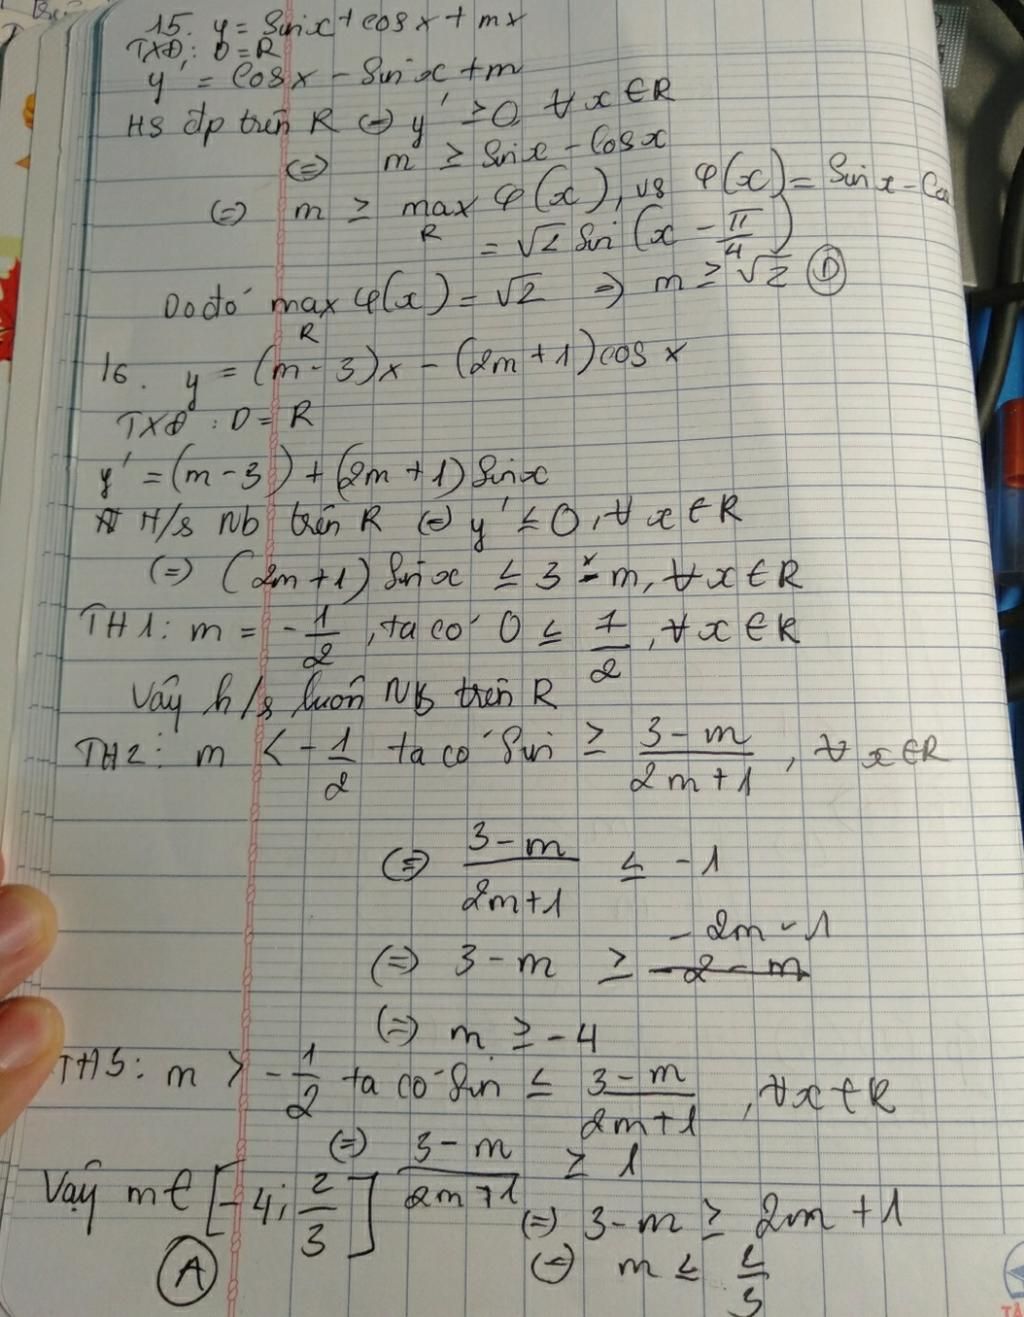 15. y = Sinx + cosx + mx
TXĐ: D = R
y' = Cosx - Sinx + m
HS đp trên R ⇔ y' ≥ 0, ∀x ∈ R
⇔ m ≥ Sinx - Cosx
⇔ m ≥ max φ(x), vs φ(x) = Sinx - Cos
R
= √2 Sin (x - π/4)
Do đó max φ(x) = √2 ⇒ m ≥ √2 (D)
R
16. y = (m - 3)x - (2m + 1)cos x
TXĐ: D = R
y' = (m - 3) + (2m + 1) Sinx
H/s Nb trên R ⇔ y' ≤ 0, ∀ x ∈ R
⇔ (2m + 1) Sinx ≤ 3 - m, ∀ x ∈ R
TH1: m = -1/2, ta có 0 ≤ 7/2, ∀ x ∈ R
Vậy h/s luôn NB trên R
TH2: m < -1/2 ta có Sin ≥ (3 - m)/(2m + 1), ∀ x ∈ R
⇔ (3 - m)/(2m + 1) ≤ -1
⇔ 3 - m ≥ -2m - 1
⇔ m ≥ -4
TH3: m > -1/2 ta có Sin ≤ (3 - m)/(2m + 1), ∀x ∈ R
⇔ (3 - m)/(2m + 1) ≥ 1
Vậy m ∈ [-4; 2/3]
⇔ 3 - m ≥ 2m + 1
(A)
⇔ m ≤ 2/3